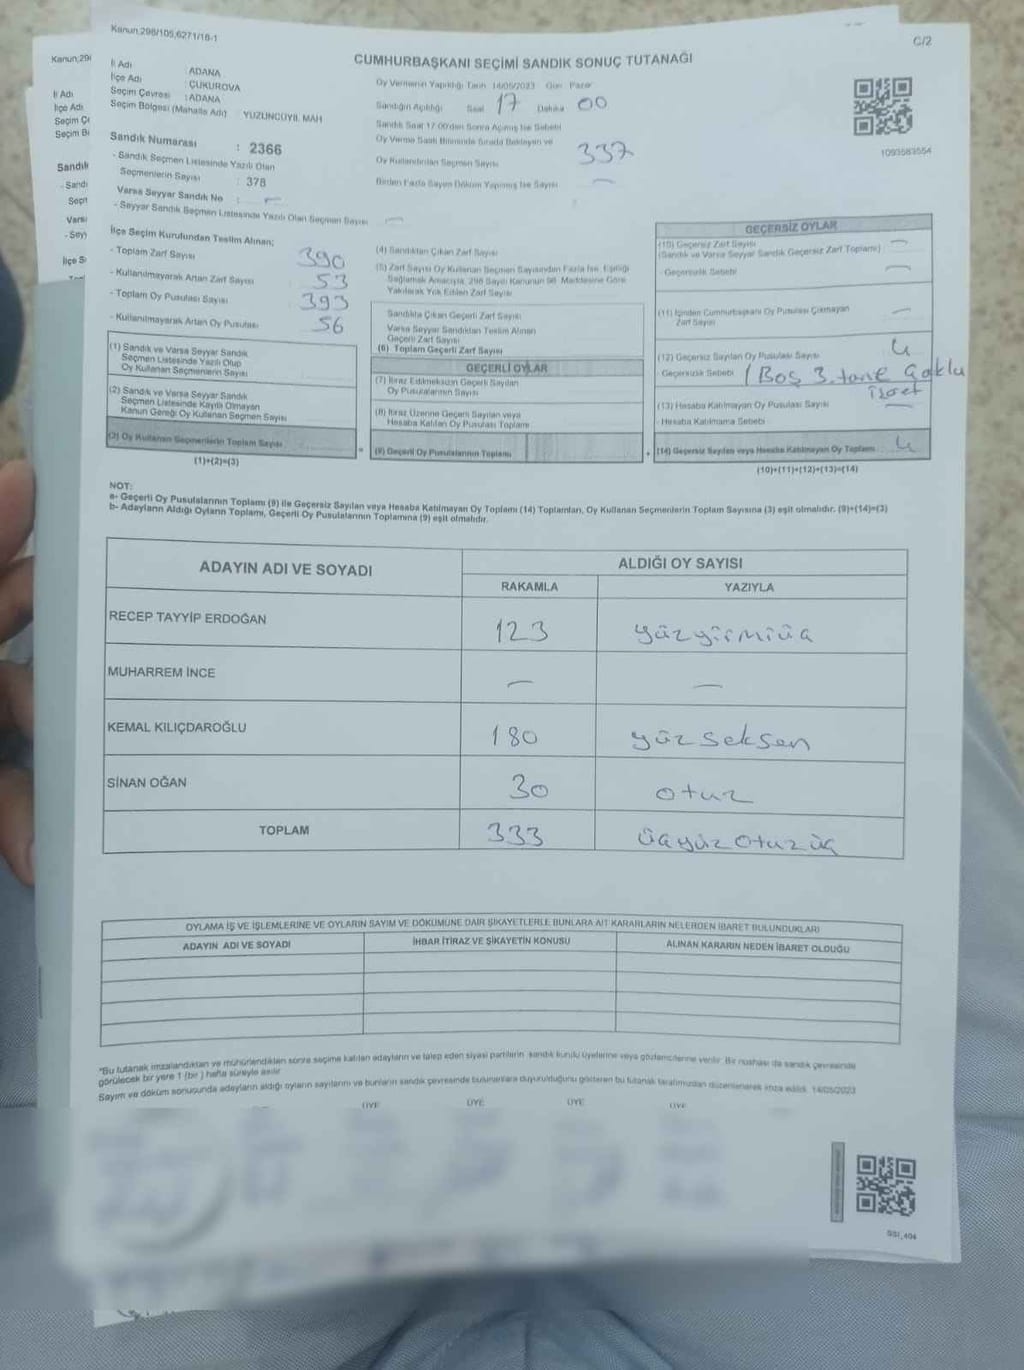 Kanun;298/105,6271/18-1
C/2
CUMHURBAŞKANI SEÇİMİ SANDIK SONUÇ TUTANAĞI
İl Adı
: ADANA
İlçe Adı
: ÇUKUROVA
Seçim Çevresi
: ADANA
Seçim Bölgesi (Mahalle Adı)
YÜZÜNCÜYIL MAH
Sandık Numarası : 2366
- Sandık Seçmen Listesinde Yazılı Olan
Seçmenlerin Sayısı : 378
Varsa Seyyar Sandık No : -
- Seyyar Sandık Seçmen Listesinde Yazılı Olan Seçmen Sayısı -
Oy Vermenin Yapıldığı Tarih 14/05/2023 Gün Pazar
Sandığın Açıldığı Saat 17 Dakika 00
Sandık Saat 17.00'den Sonra Açılmış İse Sebebi
Oy Verme Saati Bitiminde Sırada Bekleyen ve
Oy Kullandırılan Seçmen Sayısı 337
Birden Fazla Sayım Döküm Yapılmış İse Sayısı -
1093583554
İlçe Seçim Kurulundan Teslim Alınan;
- Toplam Zarf Sayısı 390
- Kullanılmayarak Artan Zarf Sayısı 53
- Toplam Oy Pusulası Sayısı 393
- Kullanılmayarak Artan Oy Pusulası 56
(1) Sandık ve Varsa Seyyar Sandık
Seçmen Listesinde Yazılı Olup
Oy Kullanan Seçmenlerin Sayısı
(2) Sandık ve Varsa Seyyar Sandık
Seçmen Listesinde Kayıtlı Olmayan
Kanun Gereği Oy Kullanan Seçmen Sayısı
(3) Oy Kullanan Seçmenlerin Toplam Sayısı
(1)+(2)=(3)
(4) Sandıktan Çıkan Zarf Sayısı
(5) Zarf Sayısı Oy Kullanan Seçmen Sayısından Fazla İse, Eşitliği
Sağlamak Amacıyla, 298 Sayılı Kanunun 98. Maddesine Göre
Yakılarak Yok Edilen Zarf Sayısı
Sandıkta Çıkan Geçerli Zarf Sayısı
Varsa Seyyar Sandıktan Teslim Alınan
Geçerli Zarf Sayısı
(6) Toplam Geçerli Zarf Sayısı
GEÇERLİ OYLAR
(7) İtiraz Edilmeksizin Geçerli Sayılan
Oy Pusulalarının Sayısı
(8) İtiraz Üzerine Geçerli Sayılan veya
Hesaba Katılan Oy Pusulası Toplamı
(9) Geçerli Oy Pusulalarının Toplamı
GEÇERSİZ OYLAR
(10) Geçersiz Zarf Sayısı -
(Sandık ve Varsa Seyyar Sandık Geçersiz Zarf Toplamı)
- Geçersizlik Sebebi -
(11) İçinden Cumhurbaşkanı Oy Pusulası Çıkmayan
Zarf Sayısı -
(12) Geçersiz Sayılan Oy Pusulası Sayısı 4
- Geçersizlik Sebebi 1 Boş 3 tane Çoklu
işaret
(13) Hesaba Katılmayan Oy Pusulası Sayısı -
- Hesaba Katılmama Sebebi
(14) Geçersiz Sayılan veya Hesaba Katılmayan Oy Toplamı 4
(10)+(11)+(12)+(13)=(14)
NOT:
a- Geçerli Oy Pusulalarının Toplamı (9) ile Geçersiz Sayılan veya Hesaba Katılmayan Oy Toplamı (14) Toplamları, Oy Kullanan Seçmenlerin Toplam Sayısına (3) eşit olmalıdır. (9)+(14)=(3)
b- Adayların Aldığı Oyların Toplamı, Geçerli Oy Pusulalarının Toplamına (9) eşit olmalıdır.
ADAYIN ADI VE SOYADI
ALDIĞI OY SAYISI
RAKAMLA
YAZIYLA
RECEP TAYYİP ERDOĞAN 123 yüzyirmiüç
MUHARREM İNCE - -
KEMAL KILIÇDAROĞLU 180 yüzseksen
SİNAN OĞAN 30 otuz
TOPLAM 333 üçyüzotuzüç
OYLAMA İŞ VE İŞLEMLERİNE VE OYLARIN SAYIM VE DÖKÜMÜNE DAİR ŞİKAYETLERLE BUNLARA AİT KARARLARIN NELERDEN İBARET BULUNDUKLARI
ADAYIN ADI VE SOYADI
İHBAR İTİRAZ VE ŞİKAYETİN KONUSU
ALINAN KARARIN NEDEN İBARET OLDUĞU
*Bu tutanak imzalandıktan ve mühürlendikten sonra seçime katılan adayların ve talep eden siyasi partilerin sandık kurulu üyelerine veya gözlemcilerine verilir. Bir nüshası da sandık çevresinde
görülecek bir yere 1 (bir) hafta süreyle asılır.
Sayım ve döküm sonucunda adayların aldığı oyların sayılarını ve bunların sandık çevresinde bulunanlara duyurulduğunu gösteren bu tutanak tarafımızdan düzenlenerek imza edildi. 14/05/2023
ÜYE
ÜYE
ÜYE
ÜYE